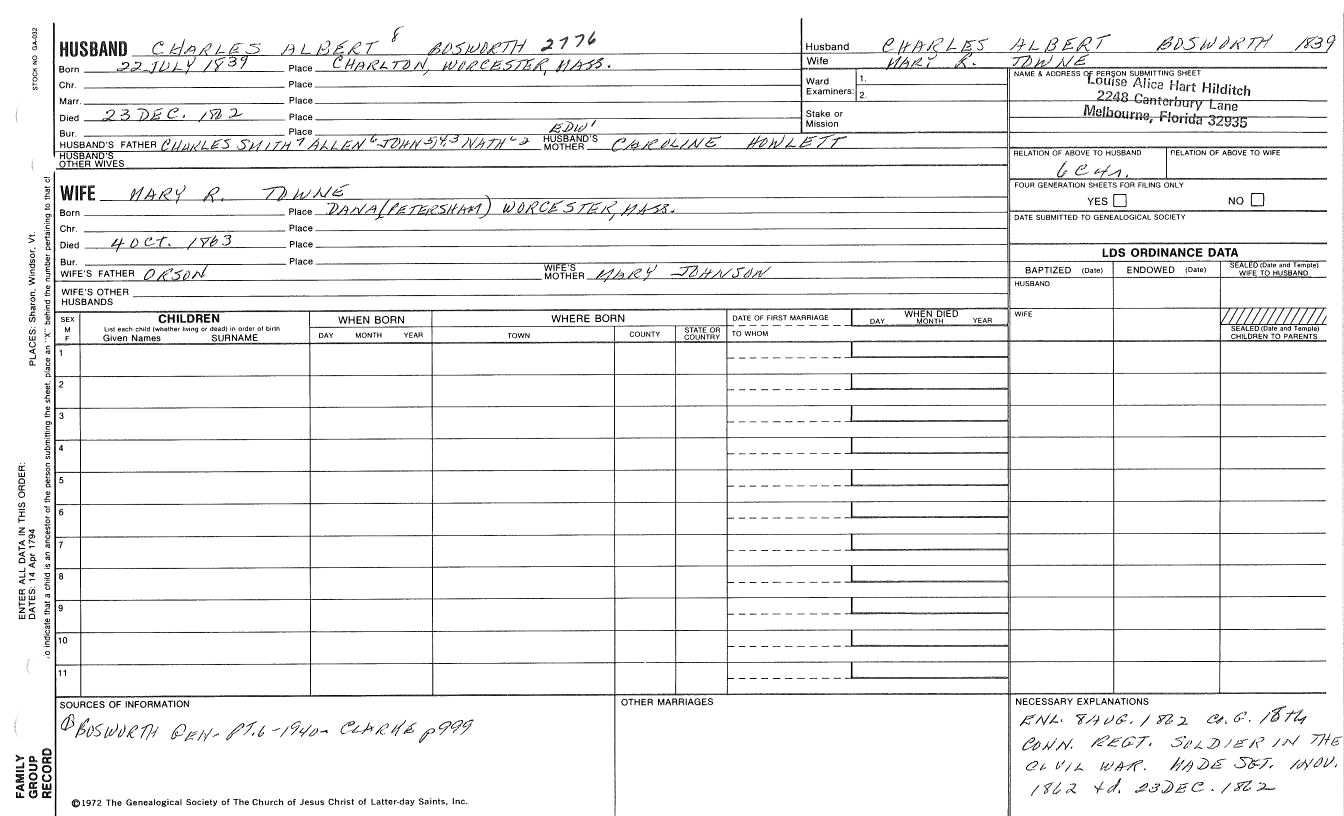 STOCK NO GA-032
HUSBAND CHARLES ALBERT 8 BOSWORTH 2776
Born 22 JULY 1839 Place CHARLTON, WORCESTER, MASS.
Chr. Place
Marr. Place
Died 23 DEC. 1862 Place
Bur. Place
EDW1
HUSBAND'S FATHER CHARLES SMITH7 ALLEN6 JOHN5,4,3 NATH'L2 HUSBAND'S MOTHER CAROLINE HOWLETT
HUSBAND'S OTHER WIVES
Husband CHARLES ALBERT BOSWORTH 1839
Wife MARY R. TOWNE
Ward Examiners: 1.
2.
Stake or Mission
NAME & ADDRESS OF PERSON SUBMITTING SHEET
Louise Alica Hart Hilditch
2248 Canterbury Lane
Melbourne, Florida 32935
RELATION OF ABOVE TO HUSBAND RELATION OF ABOVE TO WIFE
6C4r.
FOUR GENERATION SHEETS FOR FILING ONLY
YES NO
DATE SUBMITTED TO GENEALOGICAL SOCIETY
WIFE MARY R. TOWNE
Born Place DANA (PETERSHAM) WORCESTER, MASS.
Chr. Place
Died 4 OCT. 1863 Place
Bur. Place
WIFE'S FATHER ORSON WIFE'S MOTHER MARY JOHNSON
WIFE'S OTHER HUSBANDS
LDS ORDINANCE DATA
BAPTIZED (Date) ENDOWED (Date) SEALED (Date and Temple) WIFE TO HUSBAND
HUSBAND
WIFE
SEALED (Date and Temple) CHILDREN TO PARENTS
SEX M F
CHILDREN
List each child (whether living or dead) in order of birth
Given Names SURNAME
WHEN BORN
DAY MONTH YEAR
WHERE BORN
TOWN COUNTY STATE OR COUNTRY
DATE OF FIRST MARRIAGE
TO WHOM
WHEN DIED
DAY MONTH YEAR
1
2
3
4
5
6
7
8
9
10
11
PLACES: Sharon, Windsor, Vt.
ENTER ALL DATA IN THIS ORDER:
DATES: 14 Apr 1794
o indicate that a child is an ancestor of the person submitting the sheet, place an "X" behind the number pertaining to that c
FAMILY GROUP RECORD
SOURCES OF INFORMATION
BOSWORTH GEN- PT.6-1940- CLARKE p999
OTHER MARRIAGES
NECESSARY EXPLANATIONS
ENL. 8 AUG. 1862 CO.G. 18th
CONN. REGT. SOLDIER IN THE
CIVIL WAR. MADE SGT. 1 NOV.
1862 +d. 23 DEC. 1862
©1972 The Genealogical Society of The Church of Jesus Christ of Latter-day Saints, Inc.